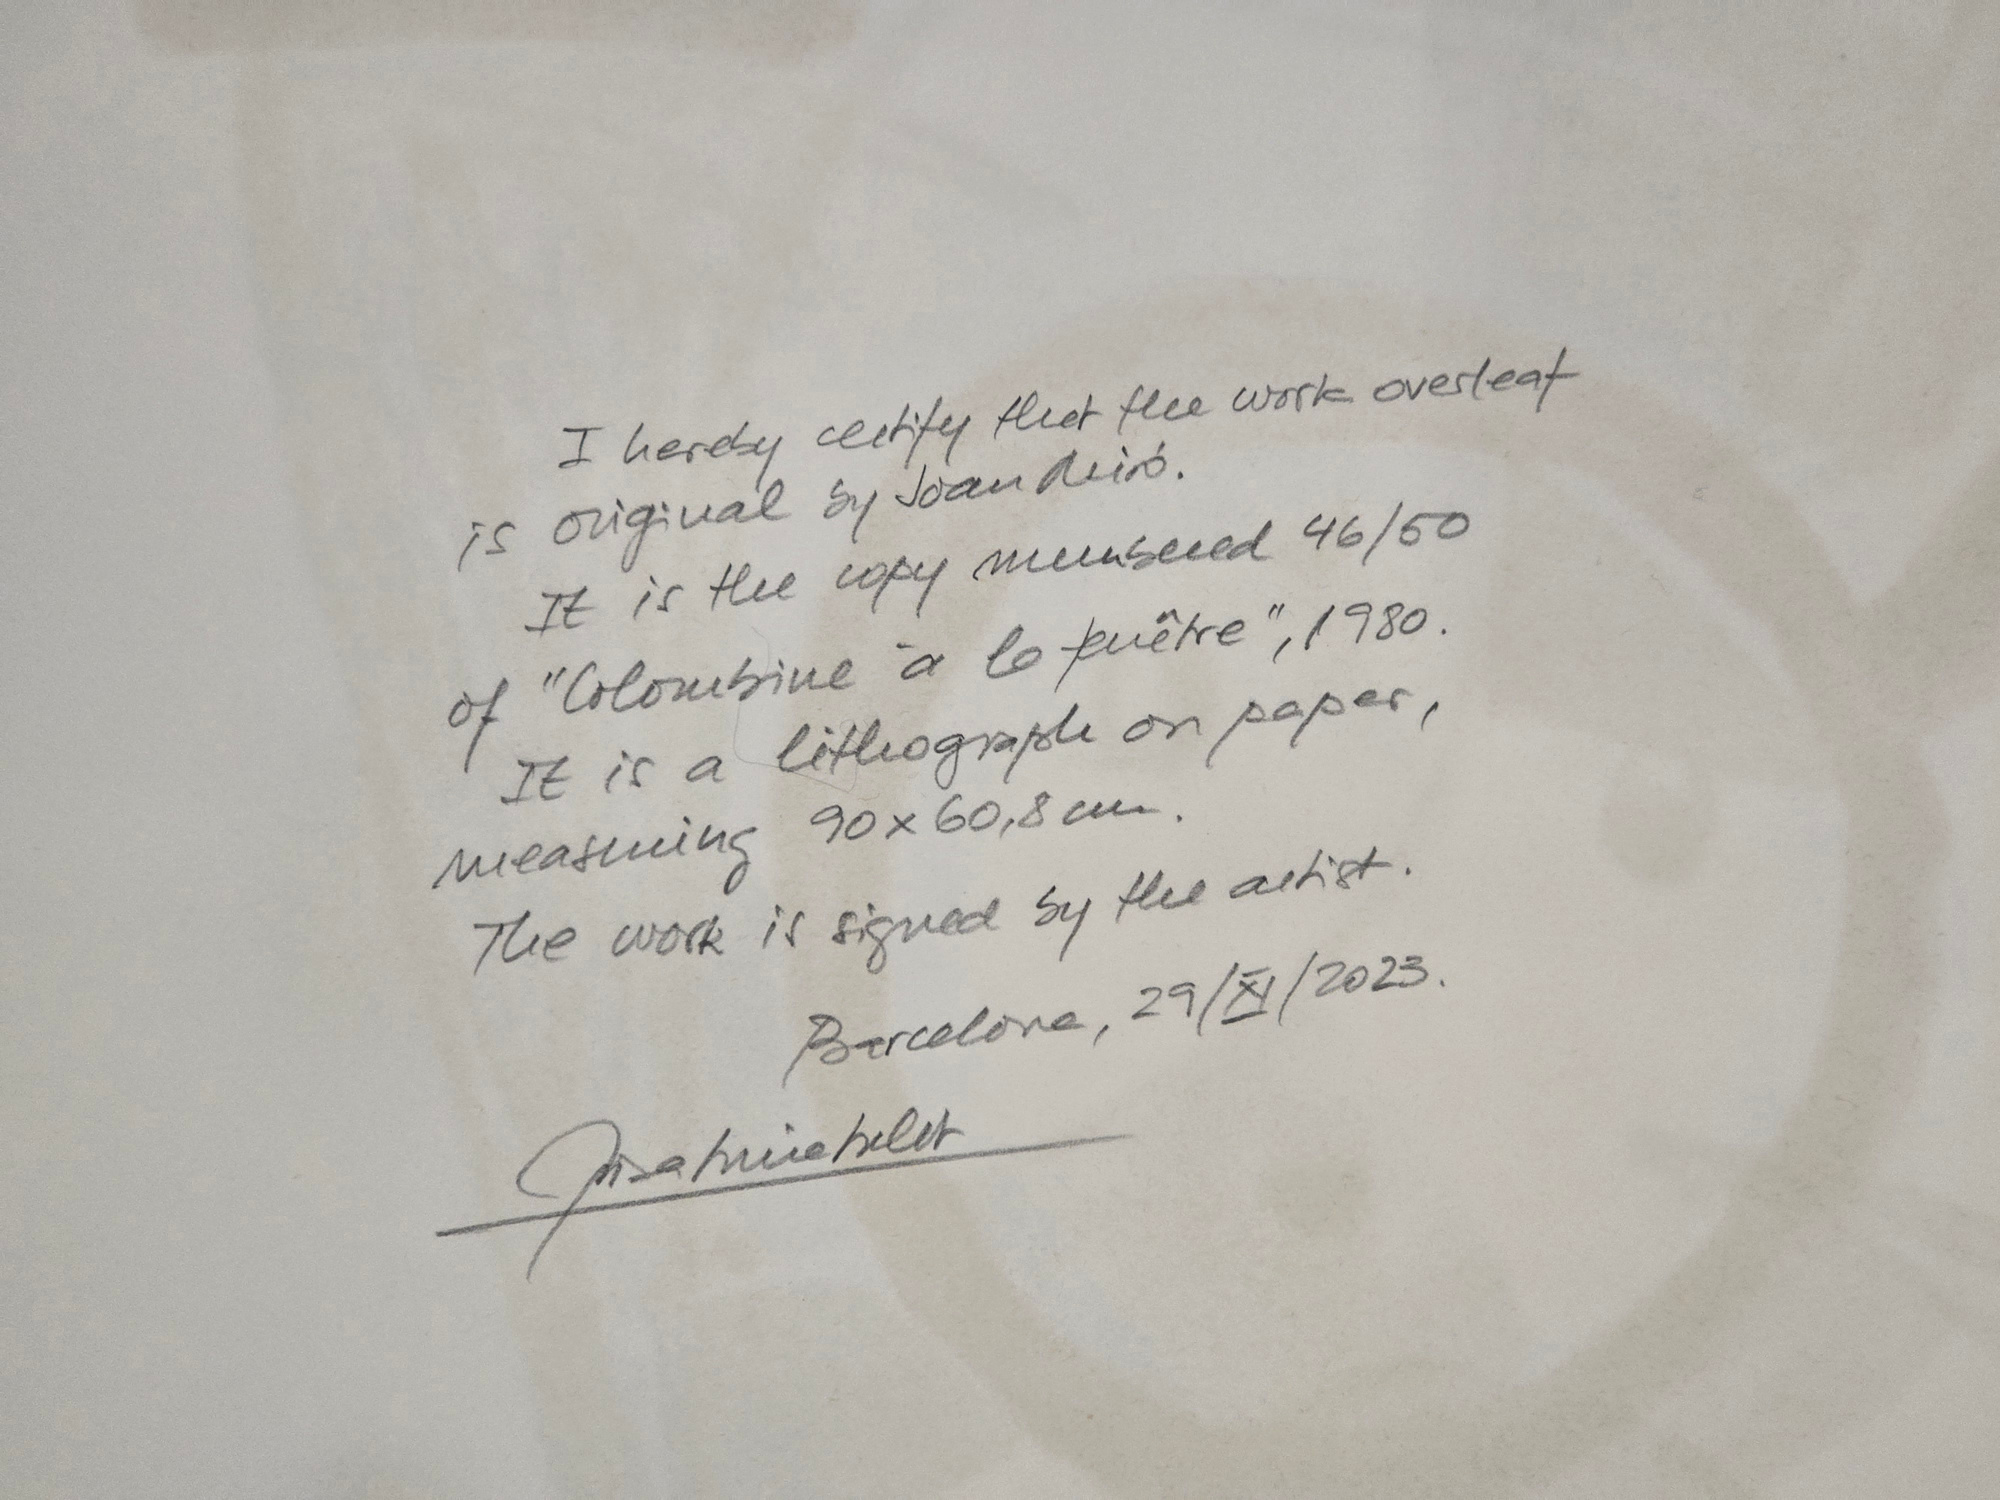 I hereby certify that the work overleaf
is original by Joan Miró.
It is the copy numbered 46/50
of "Colombine à la fenêtre", 1980.
It is a lithograph on paper,
measuring 90x60,8 cm.
The work is signed by the artist.
Barcelona, 29/XI/2023.